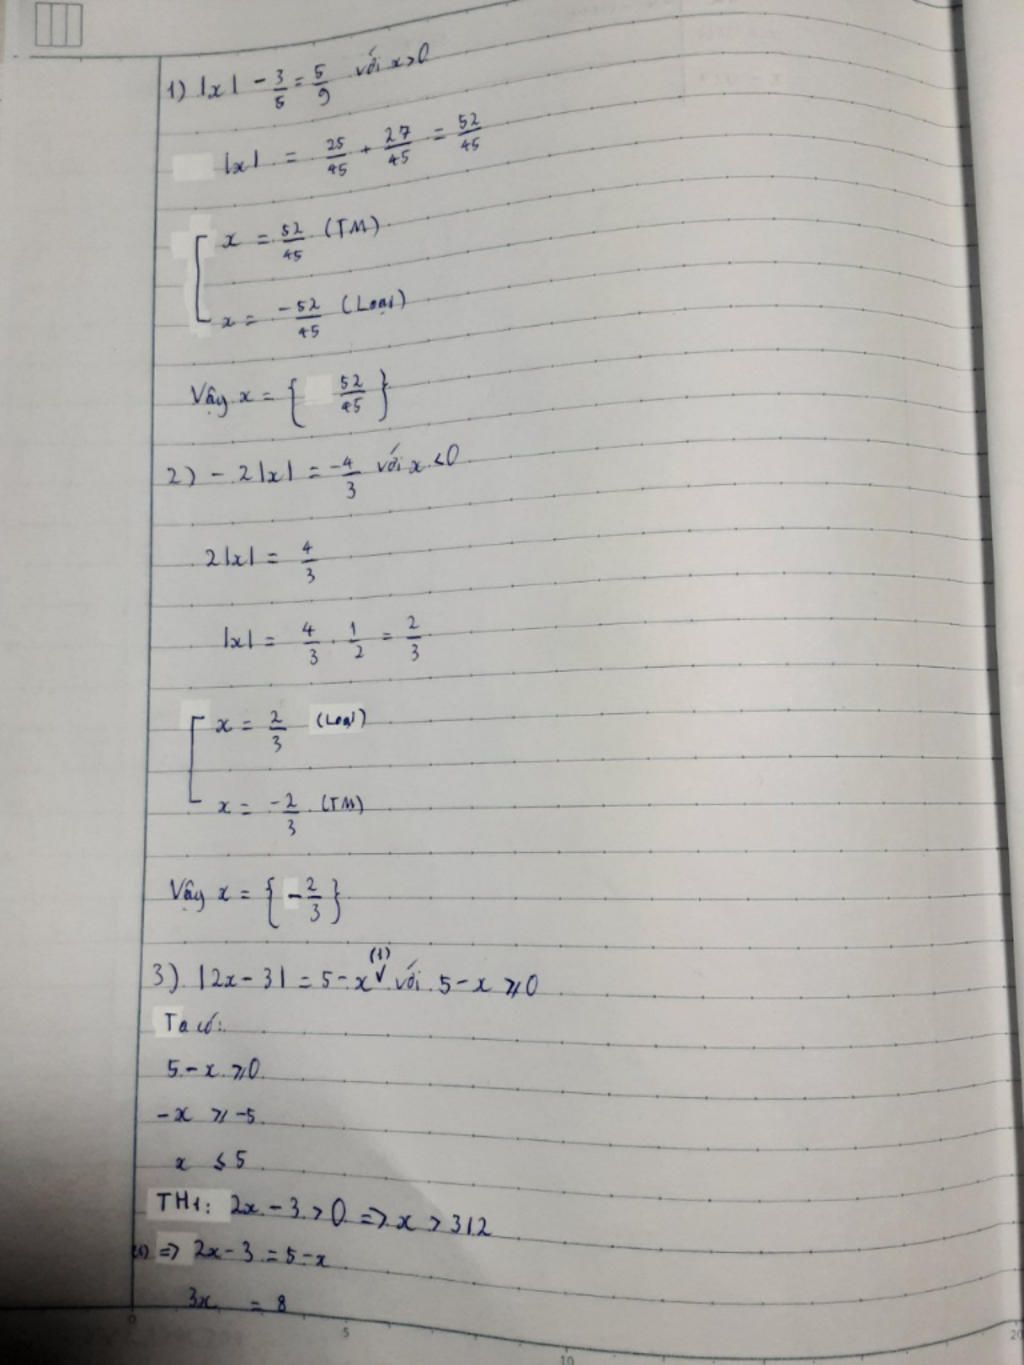 1) |x| - 3/5 = 5/9 với x>0
|x| = 25/45 + 27/45 = 52/45
x = 52/45 (TM)
x = -52/45 (Loại)
Vậy x = { 52/45 }
2) - 2|x| = -4/3 với x<0
2|x| = 4/3
|x| = 4/3 . 1/2 = 2/3
x = 2/3 (Loại)
x = -2/3 (TM)
Vậy x = { -2/3 }
3) |2x - 3| = 5 - x (1) với 5 - x ⩾ 0
Ta có:
5 - x ⩾ 0
-x ⩾ -5
x ≤ 5
TH1: 2x - 3 > 0 => x > 3/2
(1) => 2x - 3 = 5 - x
3x = 8
0 5 10 20